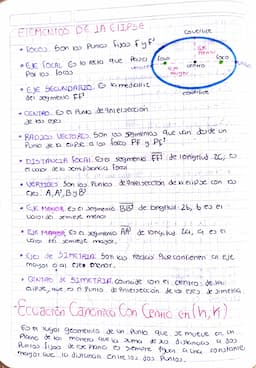 ELEMENTOS DE LA ELIPSE
covértice
EJE menor
vértice
foco
centro
foco
vértice
EJE mayor
covértice
• FOCOS: Son los Puntos Fijos F y F'
• EJE FOCAL: Es la recta que Pasa
Por los focos
• EJE SECUNDARIO: Es la mediatriz
del segmento FF'
• CENTRO: Es el Punto de intersección
de los ejes
• RADIOS VECTORES: Son los segmentos que van desde un
Punto de la elipse a los focos PF y PF'
• DISTANCIA FOCAL: Es el segmento FF' de longitud 2c, c es
el valor de la semidistancia focal
• VERTICES: Son los Puntos de intersección de la elipse con los
ejes: A, A', B y B'
• EJE MENOR: Es el segmento BB' de longitud 2b, b es el
valor del semieje menor
• EJE MAYOR: Es el segmento AA' de longitud 2a, a es el
valor del semieje mayor.
• Ejes de SIMETRIA: Son las rectas que contienen al eje
mayor o al eje menor.
• CENTRO de SIMETRIA: Coincide con el centro de la
elipse, que es el Punto de intersección de los ejes de simetria.
-Ecuación Canonica Con Centro en (h, k)
Es el lugar geometrico de un Punto que se mueve en un
Plano de tal manera que la suma de las distancias a dos
Puntos fijos de ese Plano es siempre igual a una constante
mayor que la distancia entre los dos Puntos.